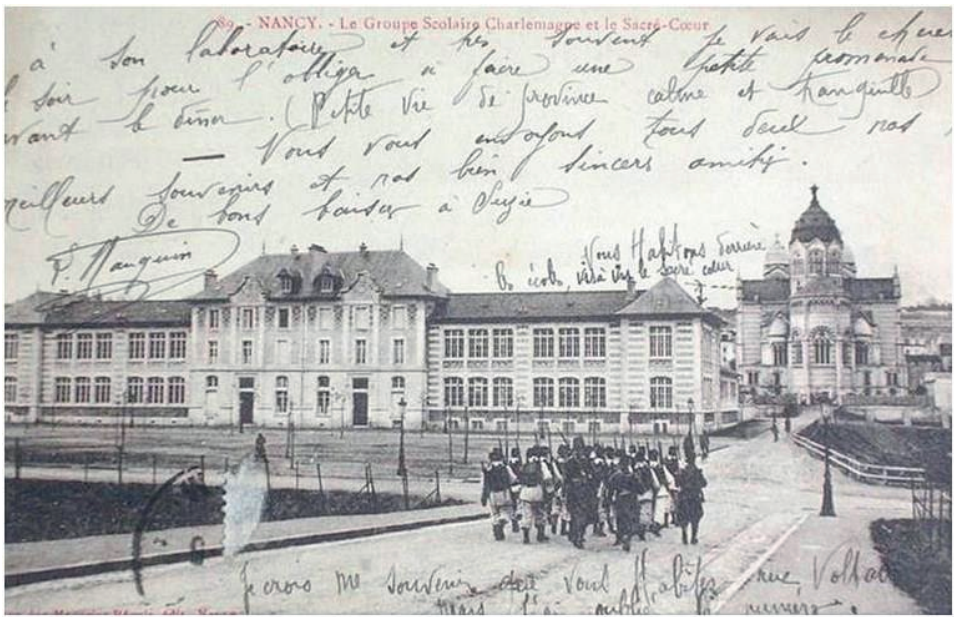 89. - NANCY. - Le Groupe Scolaire Charlemagne et le Sacré-Cœur
à son laboratoire et très souvent je vais le cherc
soir pour l'obliger à faire une petite promenade
avant le dîner. (Petite vie de province calme et tranquille)
— Nous vous envoyons tous deux nos
meilleurs souvenirs et nos bien sincères amitiés.
De bons baisers à Suzie
F. Mauguin
Nous Habitons derrière
l'école, vis à vis le sacré cœur
Je crois me souvenir que vous Habitez rue Voltai
mais j'ai oublié le numéro.